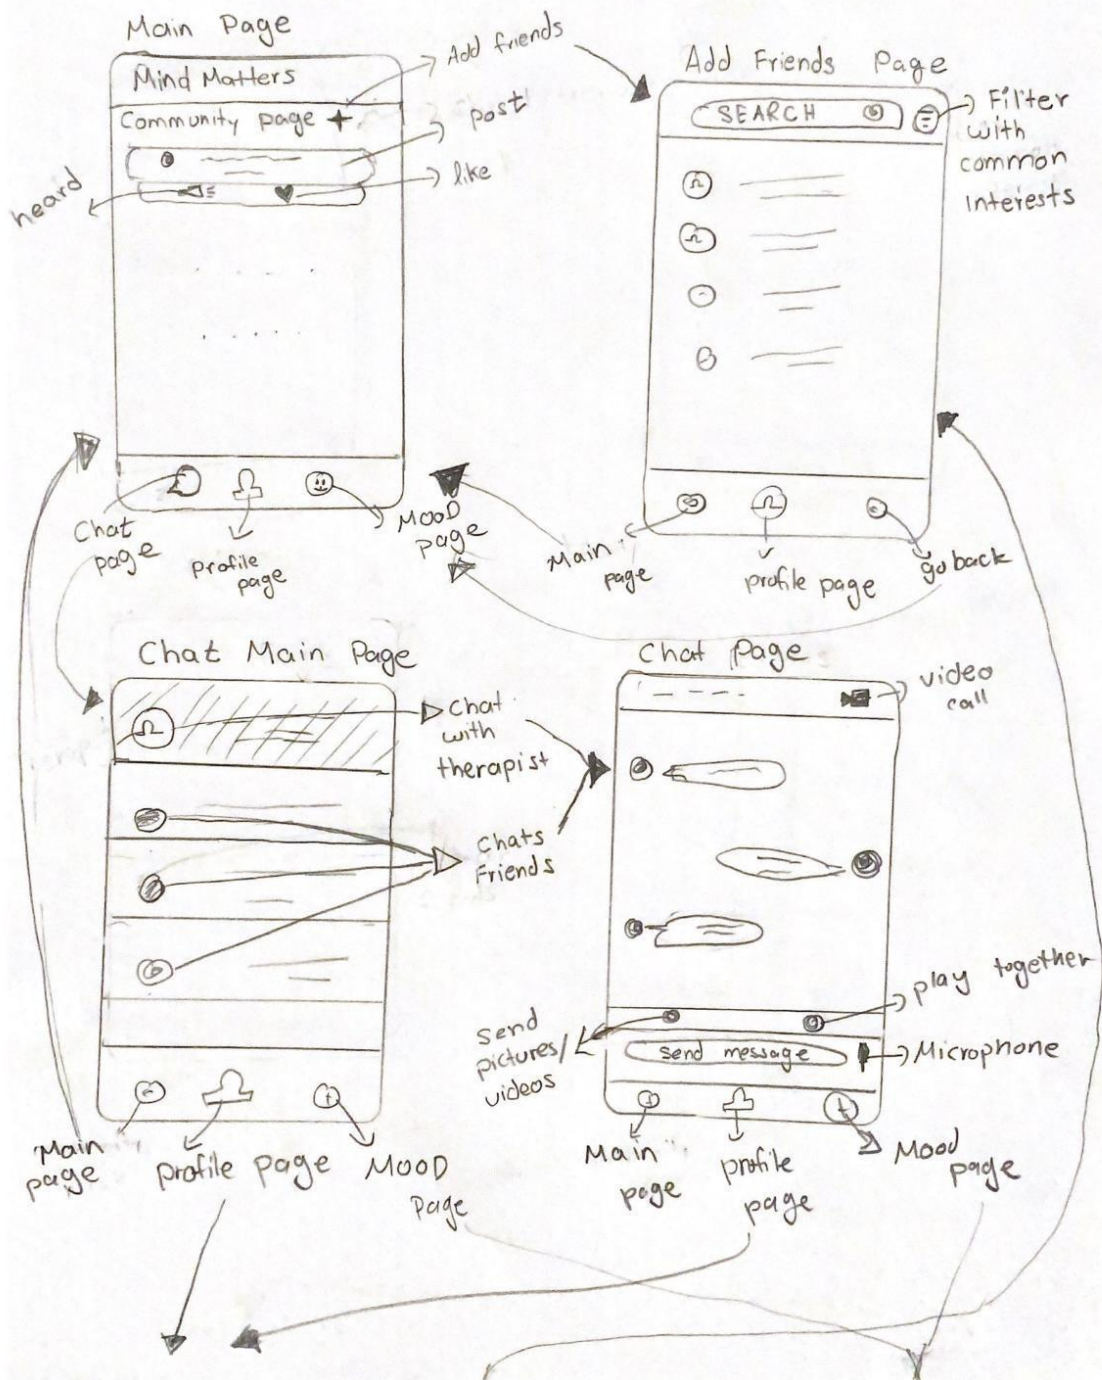 Main Page
Mind Matters
Community page +
Add friends
post
like
heard
Chat
page
profile
page
MOOD
page
Add Friends Page
SEARCH
Filter
with
common
Interests
Main
page
profile page
go back
Chat Main Page
Chat
with
therapist
Chats
Friends
Main
page
profile page
MOOD
Page
Chat Page
video
call
play together
send
pictures/
videos
send message
Microphone
Main
page
profile
page
Mood
page